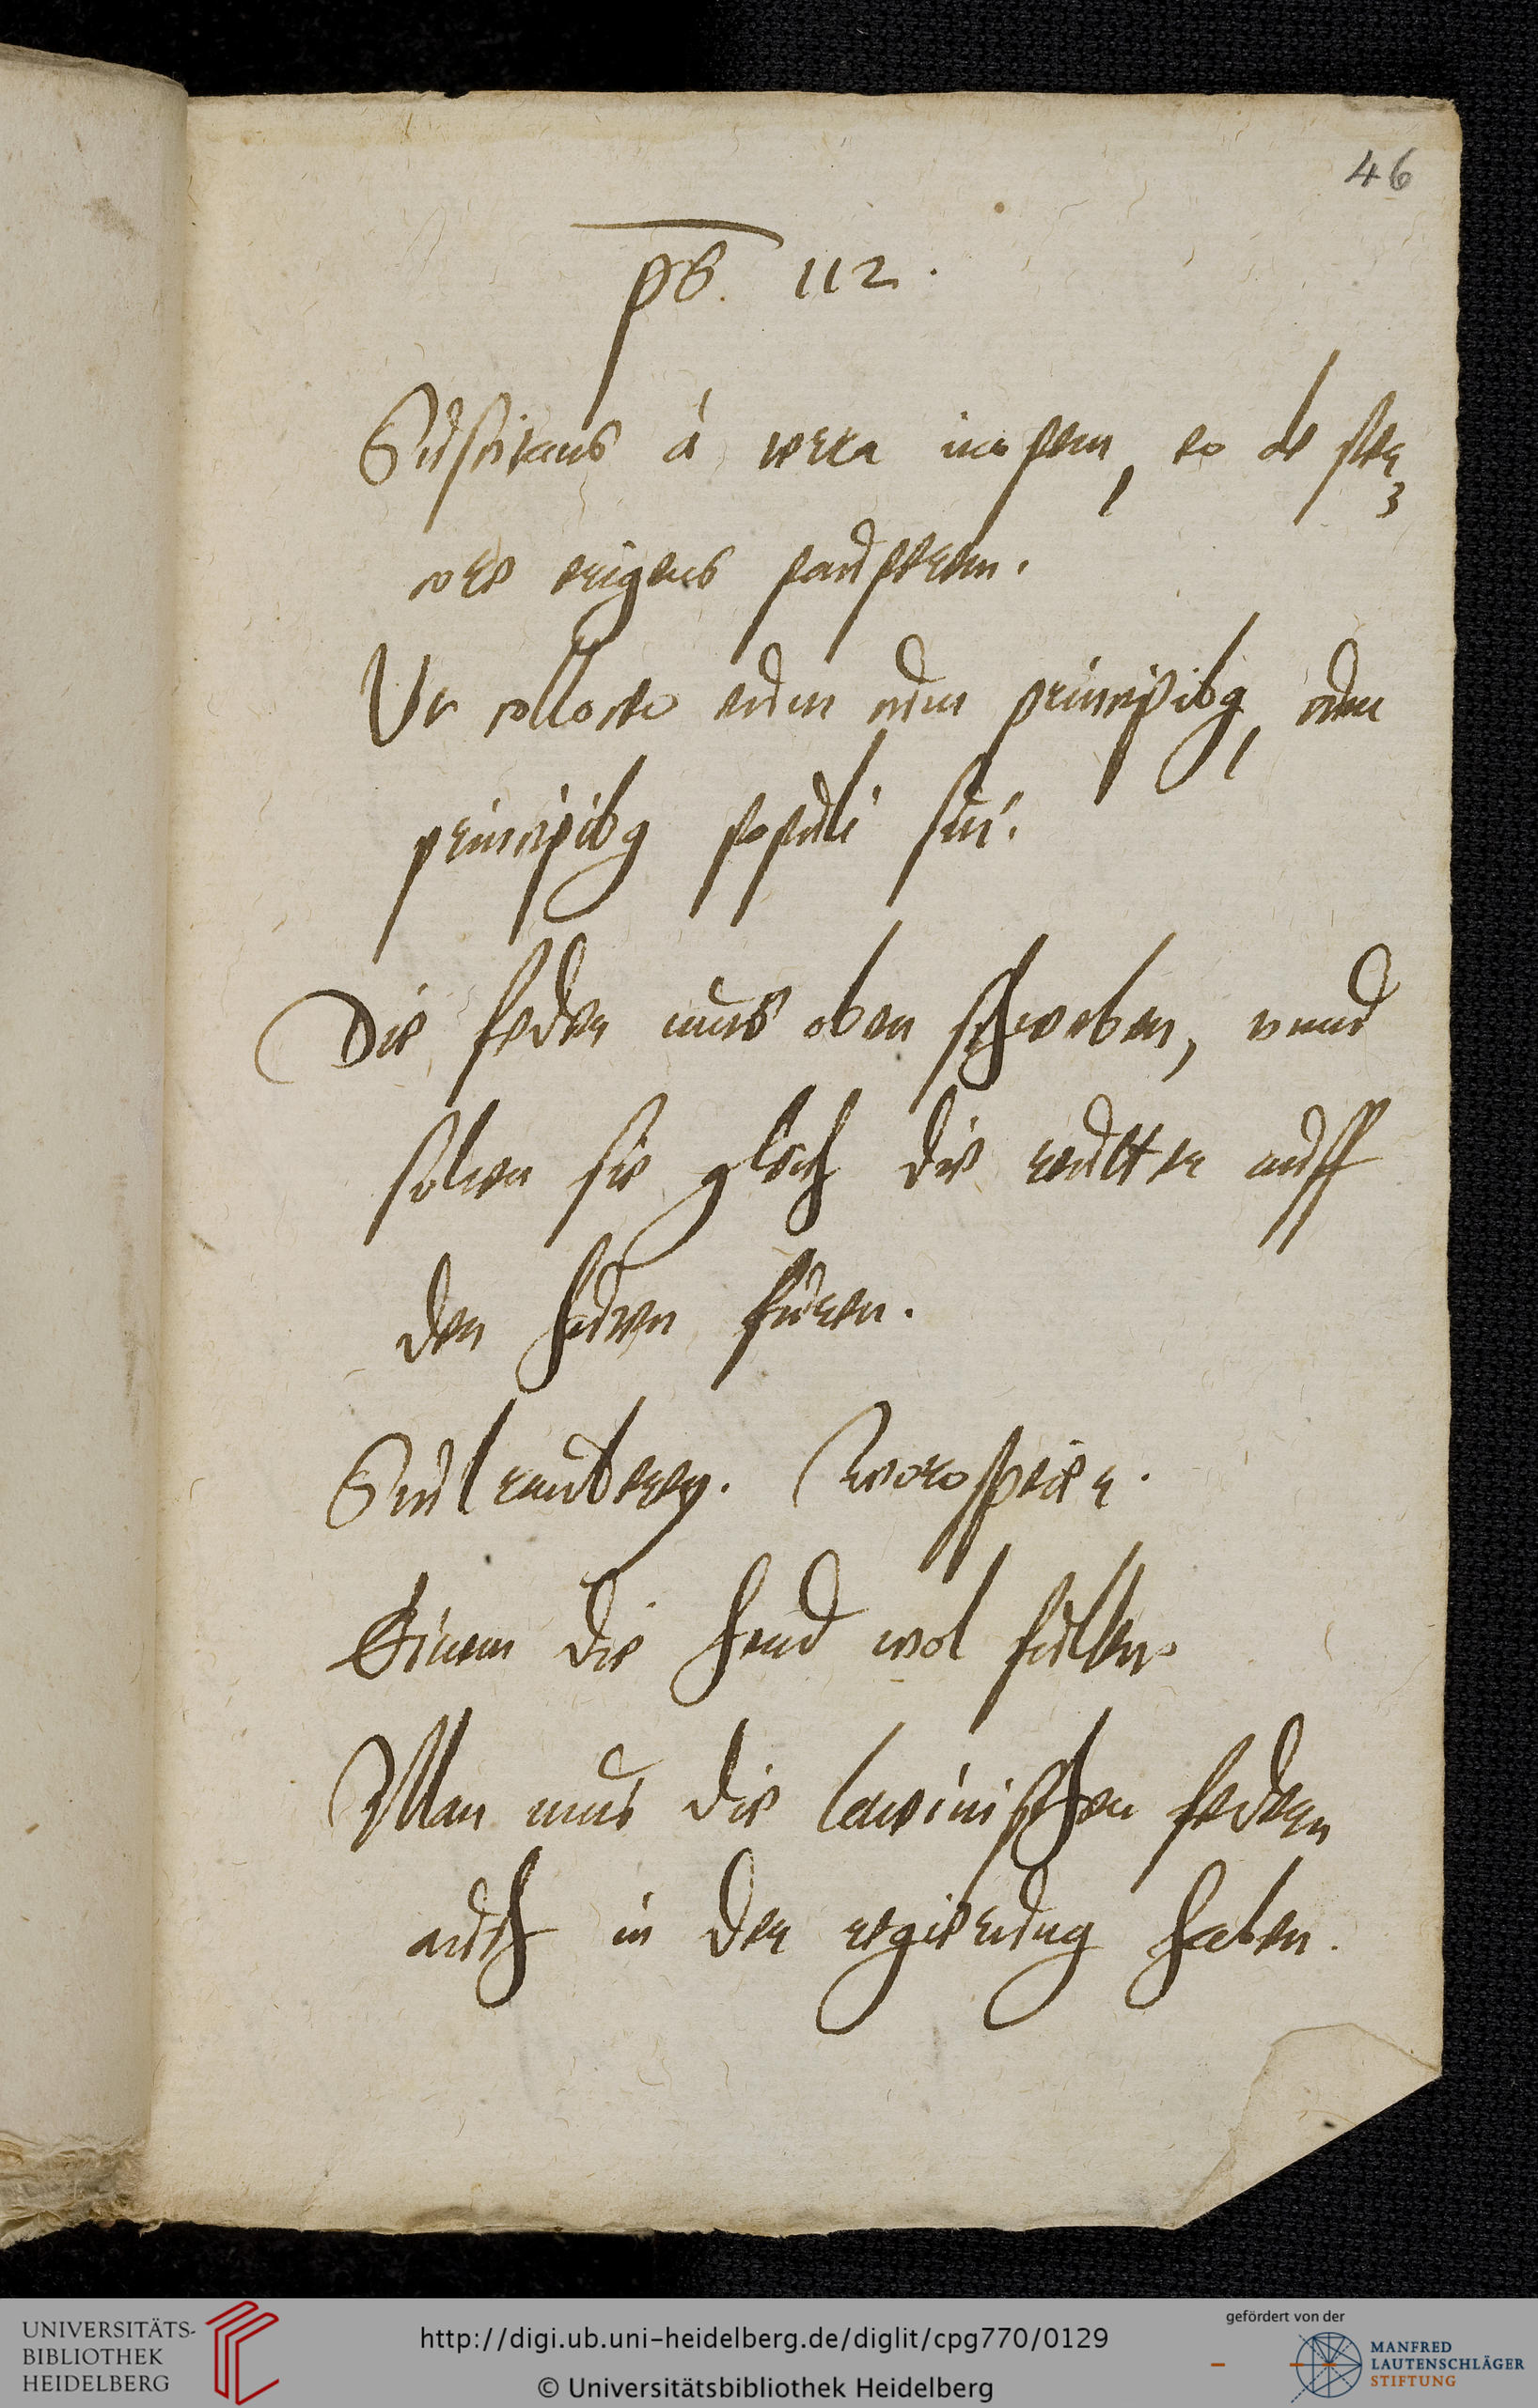 46
ps. 112.
Suscitans à terra inopem, et de ster
core erigens pauperem.
Ut collocet eum cum principibg, cum
principibg populi sui.
Die feder mus oben schweben, vnnd
solten sie gleich die reutter auff
den hüten füren.
Einem die hend wol füllen
Man mus die lateinischen federn
auch in der regierung haben.
UNIVERSITÄTS-
BIBLIOTHEK
HEIDELBERG
http://digi.ub.uni-heidelberg.de/diglit/cpg770/0129
© Universitätsbibliothek Heidelberg
gefördert von der
MANFRED
LAUTENSCHLÄGER
STIFTUNG